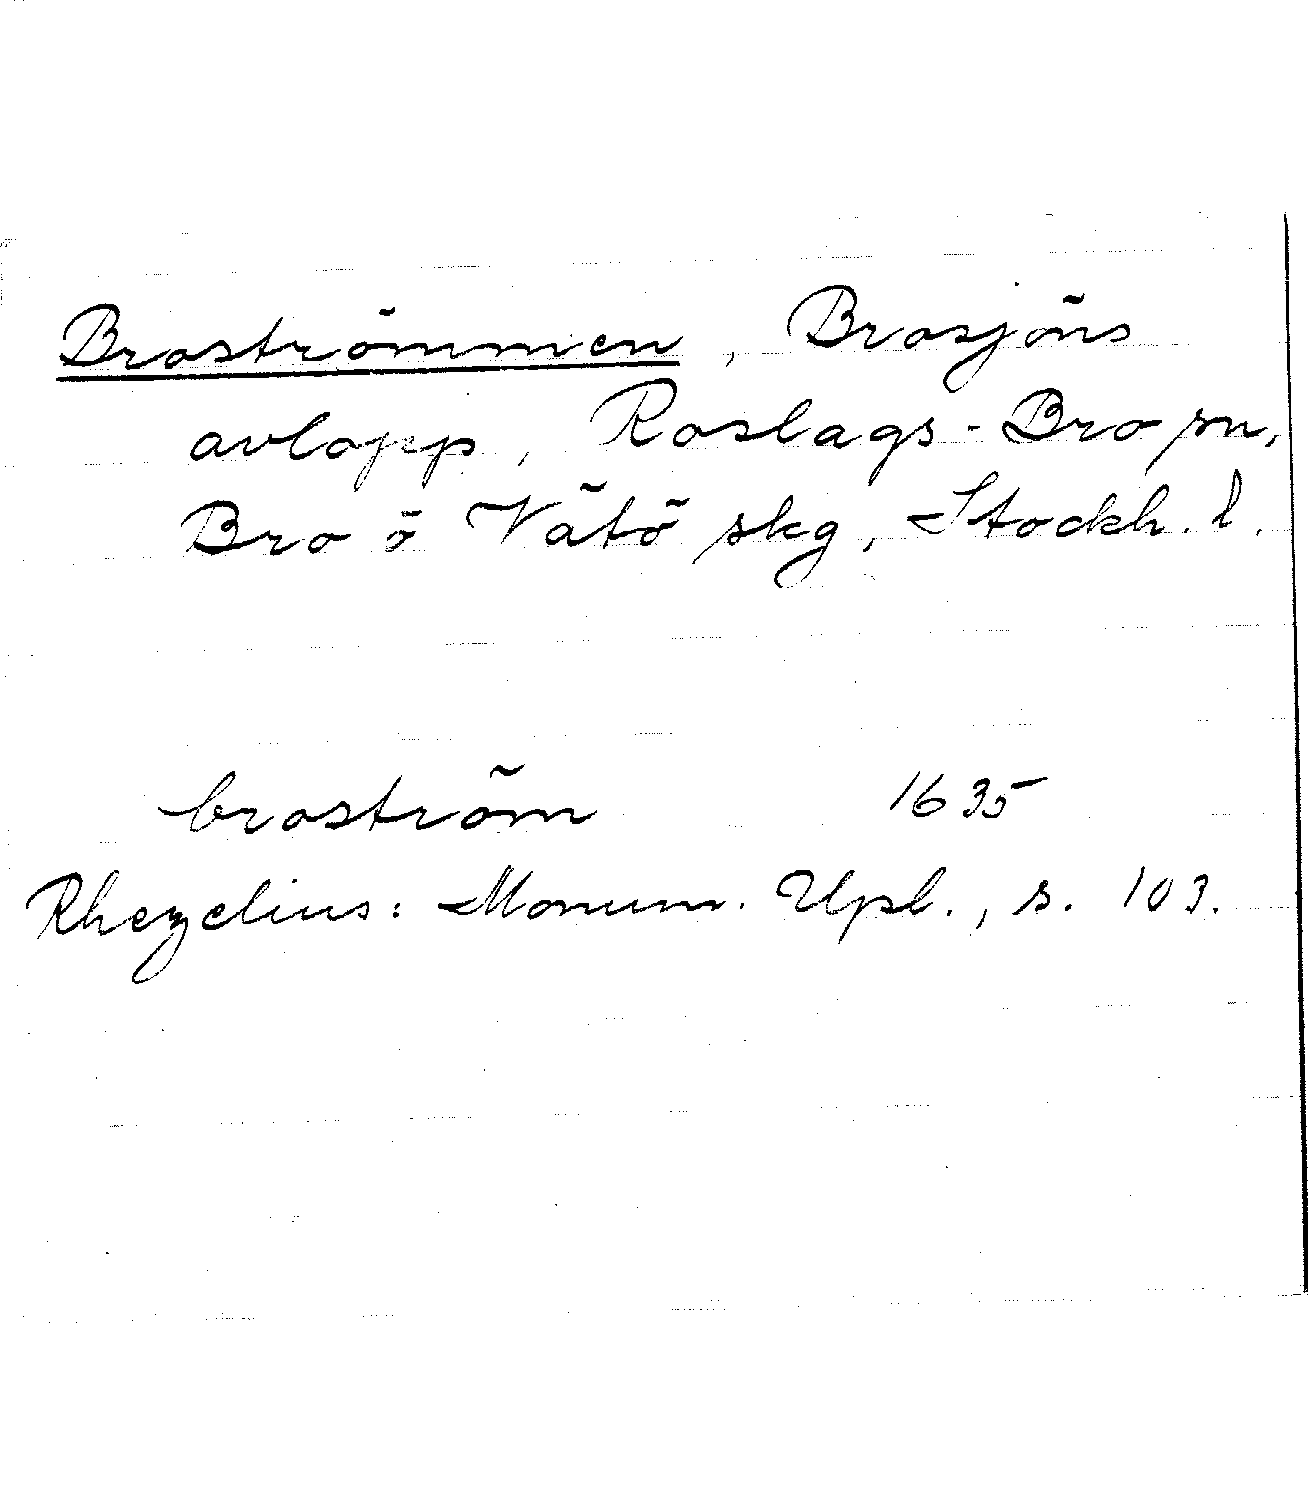 Broströmmen, Brosjöns
avlopp, Roslags-Bro sn,
Bro o Vätö skg, Stockh. l.
broström 1635
Rhezelius: Monum. Upl., s. 103.